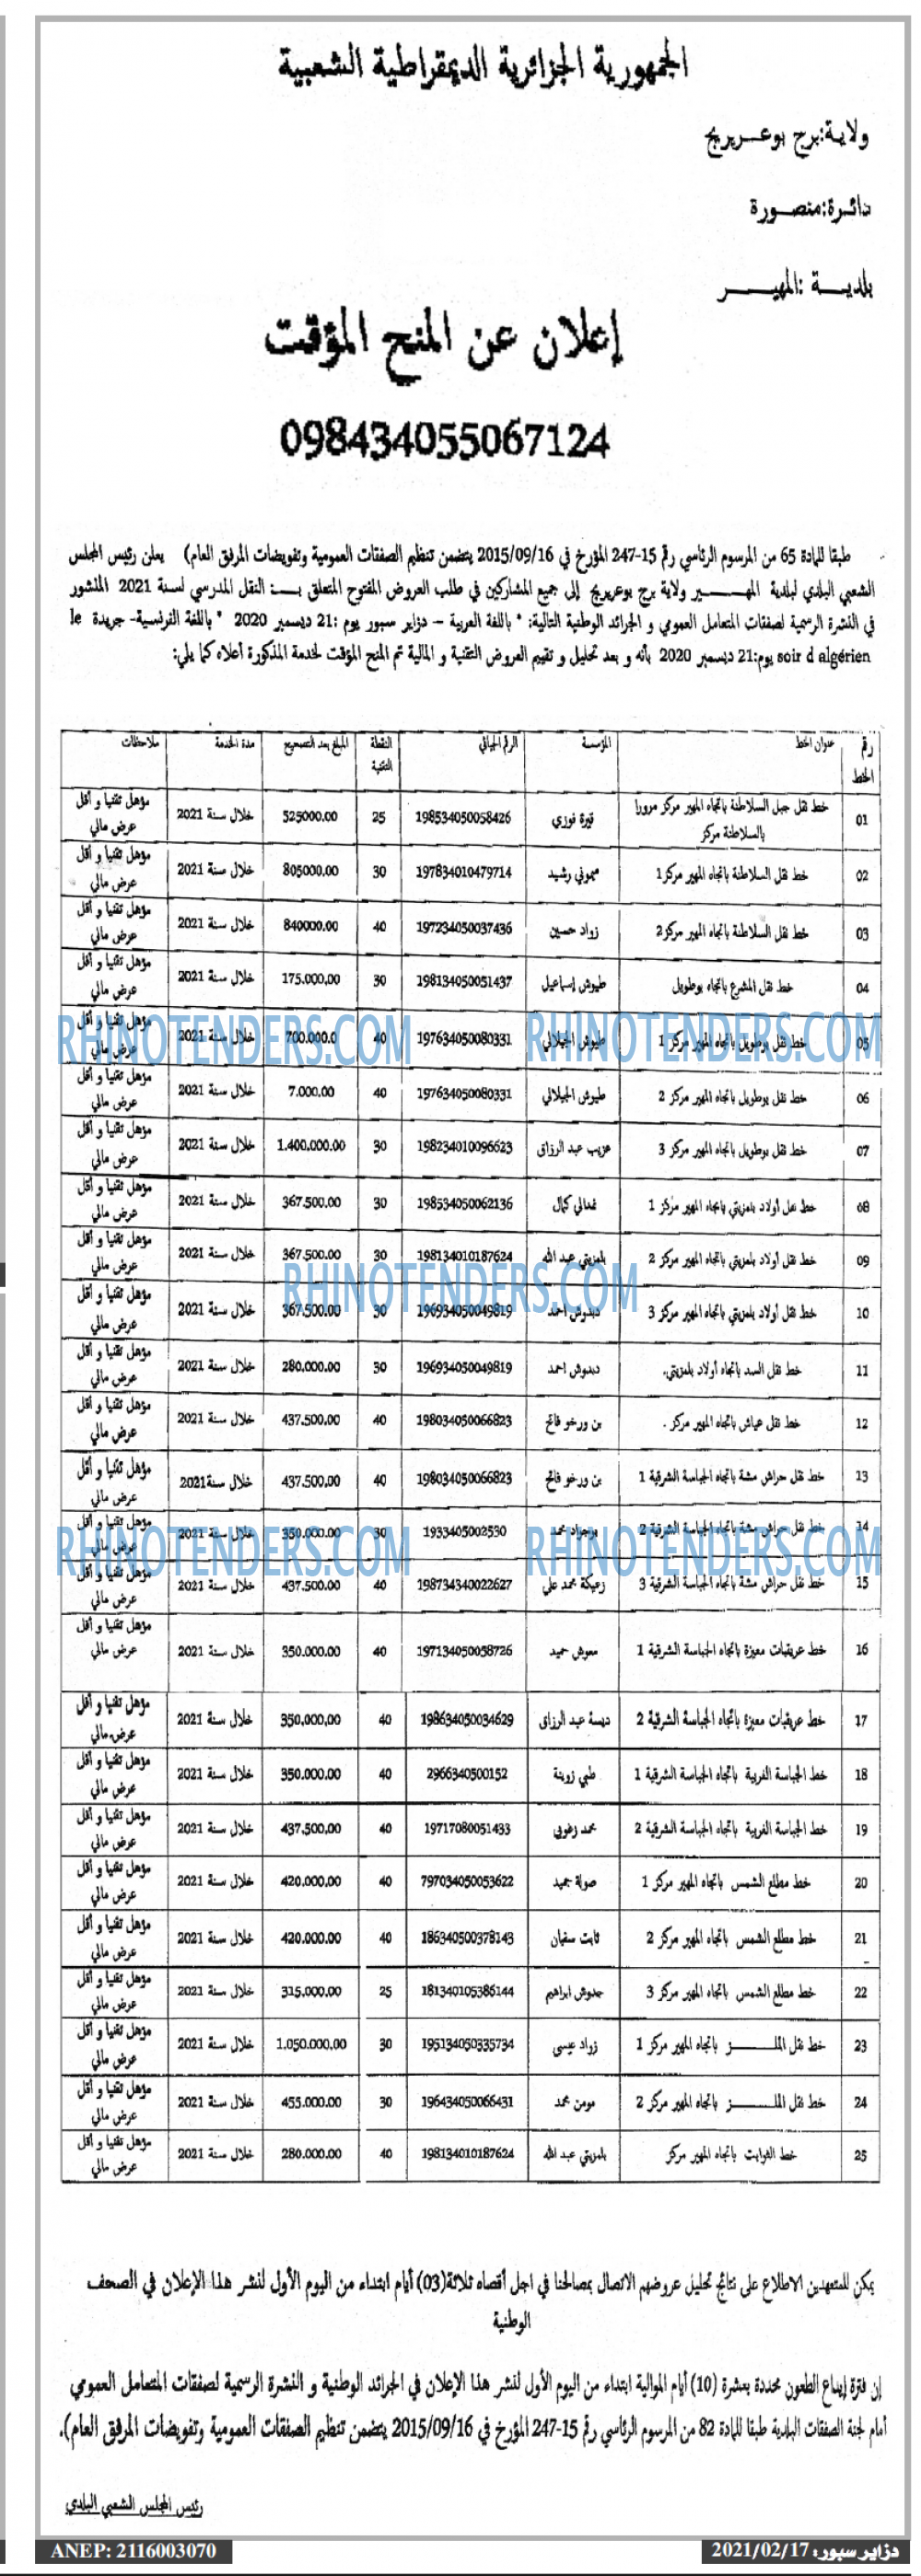 الجمهورية الجزائرية الديمقراطية الشعبية
ولاية:برج بوعـريريج
دائـرة:منصـورة
بلديـــة :المهيـــــر
إعلان عن المنح المؤقت
098434055067124
طبقا للمادة 65 من المرسوم الرئاسي رقم 15-247 المؤرخ في 2015/09/16 يتضمن تنظيم الصفقات العمومية وتفويضات المرفق العام) يعلن رئيس المجلس
الشعبي البلدي لبلدية المهـــــير ولاية برج بوعريريج إلى جميع المشاركين في طلب العروض المفتوح المتعلق بــــ: النقل المدرسي لسنة 2021 المنشور
في النشرة الرسمية لصفقات المتعامل العمومي و الجرائد الوطنية التالية: * باللغة العربية – دزاير سبور يوم :21 ديسمبر 2020 * باللغة الفرنسية- جريدة le
soir d algérien يوم:21 ديسمبر 2020 بأنه و بعد تحليل و تقييم العروض التقنية و المالية تم المنح المؤقت لخدمة المذكورة أعلاه كما يلي:
رقم الخط عنوان الخط المؤسسة الرقم الجبائي النقطة التقنية المبلغ بعد التصحيح مدة الخدمة ملاحظات
01 خط نقل جبل السلاطنة باتجاه المهير مركز مرورا بالسلاطنة مركز قيرة فوزي 198534050058426 25 525000.00 خلال سنة 2021 مؤهل تقنيا و أقل عرض مالي
02 خط نقل السلاطنة باتجاه المهير مركز 1 ميموني رشيد 197834010479714 30 805000.00 خلال سنة 2021 مؤهل تقنيا و أقل عرض مالي
03 خط نقل السلاطنة باتجاه المهير مركز2 زواد حسين 197234050037436 40 840000.00 خلال سنة 2021 مؤهل تقنيا و أقل عرض مالي
04 خط نقل المشرع باتجاه بوطويل طيوش إسماعيل 198134050051437 30 175.000,00 خلال سنة 2021 مؤهل تقنيا و أقل عرض مالي
05 خط نقل بوطويل باتجاه المهير مركز 1 طيوش الجيلالي 197634050080331 40 700.000.0 خلال سنة 2021 مؤهل تقنيا و أقل عرض مالي
06 خط نقل بوطويل باتجاه المهير مركز 2 طيوش الجيلالي 197634050080331 40 7.000.00 خلال سنة 2021 مؤهل تقنيا و أقل عرض مالي
07 خط نقل بوطويل باتجاه المهير مركز 3 عزيب عبد الرزاق 198234010096623 30 1.400.000.00 خلال سنة 2021 مؤهل تقنيا و أقل عرض مالي
08 خط نقل أولاد بلمزيتي باتجاه المهير مركز 1 كمال 198534050062136 30 367.500.00 خلال سنة 2021 مؤهل تقنيا و أقل عرض مالي
09 خط نقل أولاد بلمزيتي باتجاه المهير مركز 2 بلمزيتي عبد الله 198134010187624 30 367.500.00 خلال سنة 2021 مؤهل تقنيا و أقل عرض مالي
10 خط نقل أولاد بلمزيتي باتجاه المهير مركز 3 دبدوش احمد 196934050049819 30 367.500.00 خلال سنة 2021 مؤهل تقنيا و أقل عرض مالي
11 خط نقل السد باتجاه أولاد بلمزيتي. دبدوش احمد 196934050049819 30 280.000.00 خلال سنة 2021 مؤهل تقنيا و أقل عرض مالي
12 خط نقل عياش باتجاه المهير مركز . بن ورخو فاتح 198034050066823 40 437.500.00 خلال سنة 2021 مؤهل تقنيا و أقل عرض مالي
13 خط نقل حراش مشة باتجاه الجباسة الشرقية 1 بن ورخو فاتح 198034050066823 40 437.500,00 خلال سنة2021 مؤهل تقنيا و أقل عرض مالي
14 خط نقل حراش مشة باتجاه الجباسة الشرقية 2 بوجراد محمد 1933405002530 30 350.000.00 خلال سنة 2021 مؤهل تقنيا و أقل عرض مالي
15 خط نقل حراش مشة باتجاه الجباسة الشرقية 3 زعيكة محمد علي 198734340022627 40 437.500.00 خلال سنة 2021 مؤهل تقنيا و أقل عرض مالي
16 خط عريقبات معيزة باتجاه الجباسة الشرقية 1 معوش حميد 197134050058726 40 350.000.00 خلال سنة 2021 مؤهل تقنيا و أقل عرض مالي
17 خط عريقبات معيزة باتجاه الجباسة الشرقية 2 ديسة عبد الرزاق 198634050034629 40 350,000,00 خلال سنة 2021 مؤهل تقنيا و أقل عرض مالي
18 خط الجباسة الغربية باتجاه الجباسة الشرقية 1 طبي زوينة 2966340500152 40 350.000.00 خلال سنة 2021 مؤهل تقنيا و أقل عرض مالي
19 خط الجباسة الغربية باتجاه الجباسة الشرقية 2 محمد زغوني 19717080051433 40 437,500,00 خلال سنة 2021 مؤهل تقنيا و أقل عرض مالي
20 خط مطلع الشمس باتجاه المهير مركز 1 صولة حميد 797034050053622 40 420.000.00 خلال سنة 2021 مؤهل تقنيا و أقل عرض مالي
21 خط مطلع الشمس باتجاه المهير مركز 2 ثابت سفيان 186340500378143 40 420.000.00 خلال سنة 2021 مؤهل تقنيا و أقل عرض مالي
22 خط مطلع الشمس باتجاه المهير مركز 3 حدوش ابراهيم 181340105386144 25 315.000.00 خلال سنة 2021 مؤهل تقنيا و أقل عرض مالي
23 خط نقل الملـــــز باتجاه المهير مركز 1 زواد عيسى 195134050335734 30 1.050.000,00 خلال سنة 2021 مؤهل تقنيا و أقل عرض مالي
24 خط نقل الملـــــز باتجاه المهير مركز 2 مومن محمد 196434050066431 30 455.000.00 خلال سنة 2021 مؤهل تقنيا و أقل عرض مالي
25 خط الثوابت باتجاه المهير مركز بلمزيتي عبد الله 198134010187624 40 280.000.00 خلال سنة 2021 مؤهل تقنيا و أقل عرض مالي
RHINOTENDERS.COM RHINOTENDERS.COM
RHINOTENDERS.COM
RHINOTENDERS.COM RHINOTENDERS.COM
يمكن للمتعهدين الاطلاع على نتائج تحليل عروضهم الاتصال بمصالحنا في اجل أقصاه ثلاثة(03) أيام ابتداء من اليوم الأول لنشر هذا الإعلان في الصحف
الوطنية
إن فترة إيداع الطعون محددة بعشرة (10) أيام الموالية ابتداء من اليوم الأول لنشر هذا الإعلان في الجرائد الوطنية و النشرة الرسمية لصفقات المتعامل العمومي
أمام لجنة الصفقات البلدية طبقا للمادة 82 من المرسوم الرئاسي رقم 15-247 المؤرخ في 2015/09/16 يتضمن تنظيم الصفقات العمومية وتفويضات المرفق العام).
رئيس المجلس الشعبي البلدي
دزاير سبور: 2021/02/17
ANEP: 2116003070